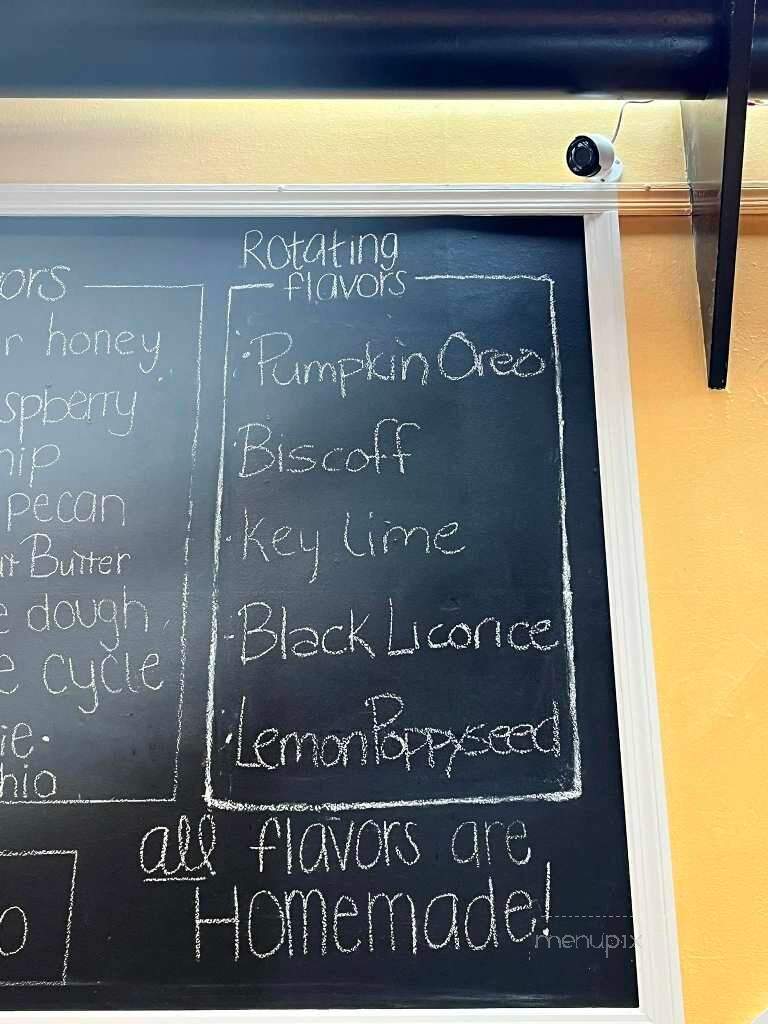 ors
r honey
spberry
hip
pecan
ut Butter
e dough
e cycle
ie.
hio
o
Rotating
flavors
Pumpkin Oreo
Biscoff
Key lime
Black Licorice
Lemon Poppyseed
all flavors are
Homemade!
menupix